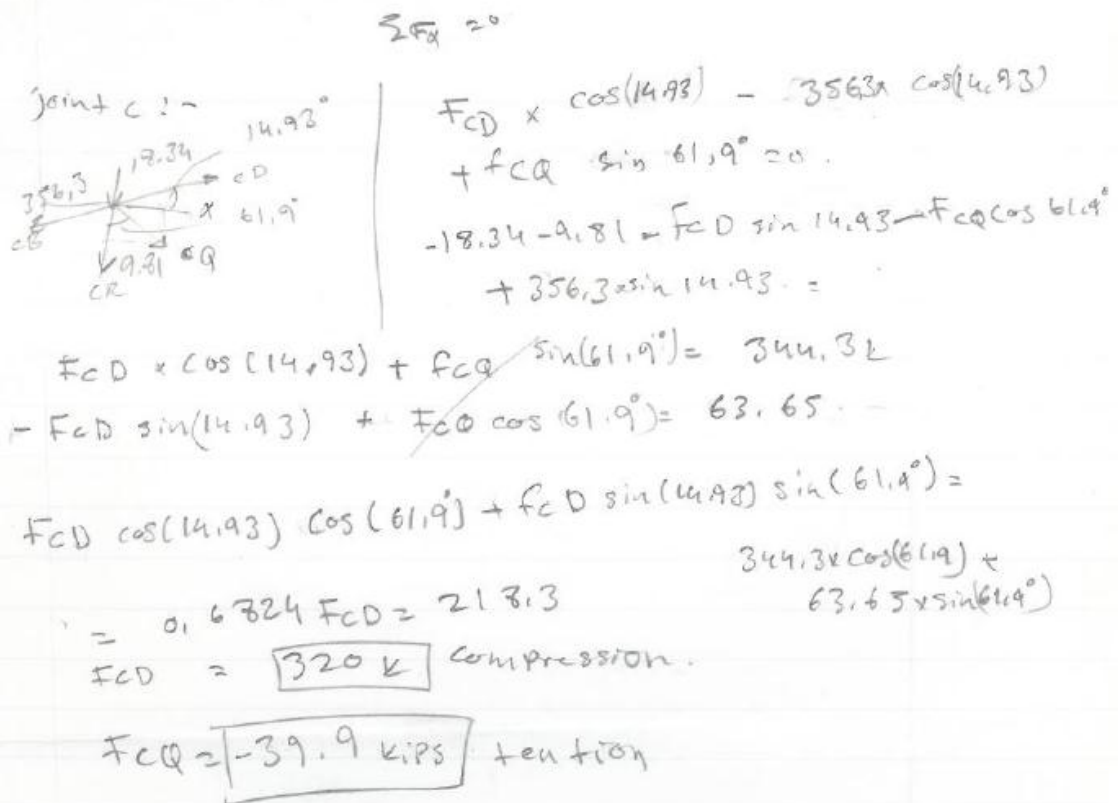 ΣFx = 0
joint c :-
14.93°
18.34
CD
356,3
x
61,9°
CB
9.81
CQ
CR
FCD × cos(14.93) - 3563x cos(14.93)
+ fCQ sin 61,9° = 0.
-18.34 - 9.81 - FCD sin 14.93 - FCQ cos 61.9°
+ 356,3 x sin 14.93. =
FCD × cos (14,93) + fCQ sin(61,9°) = 344.3k
- FCD sin(14.93) + FCQ cos (61.9°) = 63.65.
FCD cos(14.93) cos (61,9°) + fCD sin(14.93) sin(61,9°) =
344.3x cos(61.9) +
63.65 x sin(61.9°)
= 0,6824 FCD = 218.3
FCD = 320 k compression.
FCQ = -39.9 kips tention